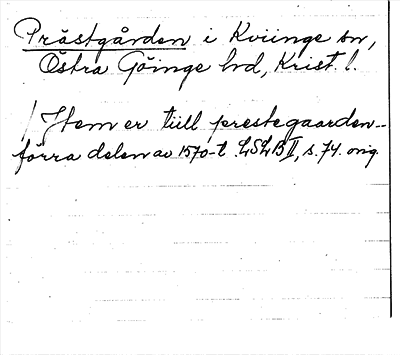 Prästgården i Kviinge sn,
Östra Göinge hd, Krist. l.
/ Hem er tiill prestegaarden --
förra delen av 1570-t. LSLB II, s. 74. orig.